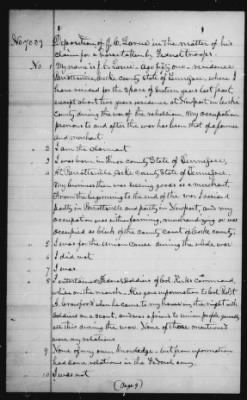 No 7009 Deposition of J. C. Lorne in the matter of his
claim for a horse taken by Federal troops
No 1 My name is J C Lorne. Age fifty one - residence
Parrottsville, Cocke county State of Tennessee, where I
have resided for the space of sixteen years last past
except about two years residence at Newport in Cocke
county during the war of the rebellion. My occupation
previous to and after the war has been that of farmer
and merchant
2 I am the claimant
3 I was born in the county State of Tennessee
4 At Parrottsville Cocke county State of Tennessee.
My business then was selling goods as a merchant.
From the beginning to the end of the war I resided
partly in Parrottsville and partly in Newport, and my
occupation was farming, merchandizing or was
occupied as clerk of the county court of Cocke county.
5 I was for the union cause during the whole war
6 I did not
7 I was
8 I entertained Federal soldiers of Col Kirk's command,
when on the march. Also gave information to Col
J. Crawford when he came to my house in the night with
soldiers on a scout, and was a friend to union people generally
all this during the war. None of those mentioned
were my relations
9 None of my own knowledge - but from information
had some relations in the Federal army
10 I was not
(Page 9)